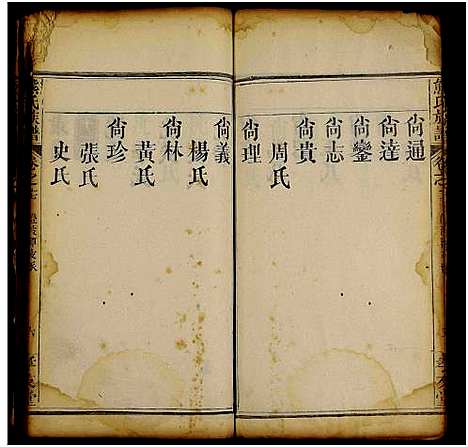 尙通
尙達
尙鑾
尙志
尙貴
周氏
尙理
尙義
楊氏
尙林
黃氏
尙珍
張氏
史氏